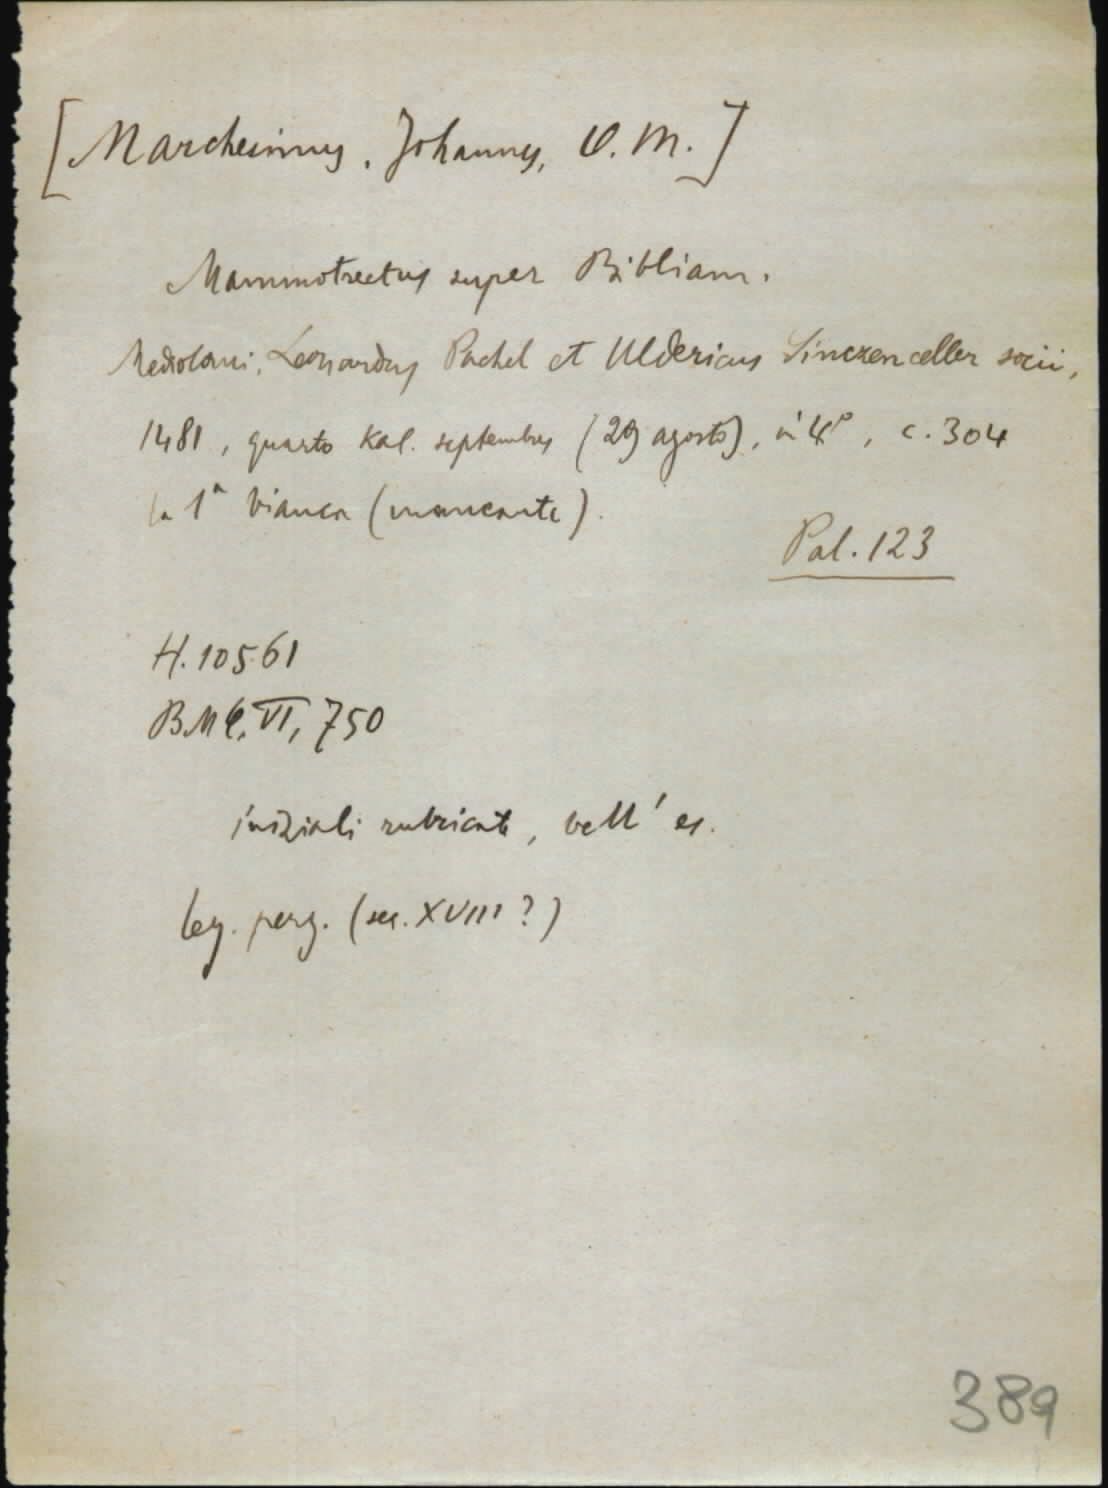 [Marchesinus, Johannes, O. M.]
Mammotrectus super Bibliam.
Mediolani, Leonardus Pachel et Uldericus Sinczenceller socii,
1481, quarto Kal. septembres (29 agosto), in 4°, c. 304
la 1ª bianca (mancante).
Pal. 123
H. 10561
BMC, VI, 750
iniziali rubricate, bell' es.
leg. perg. (sec. XVIII ?)
389